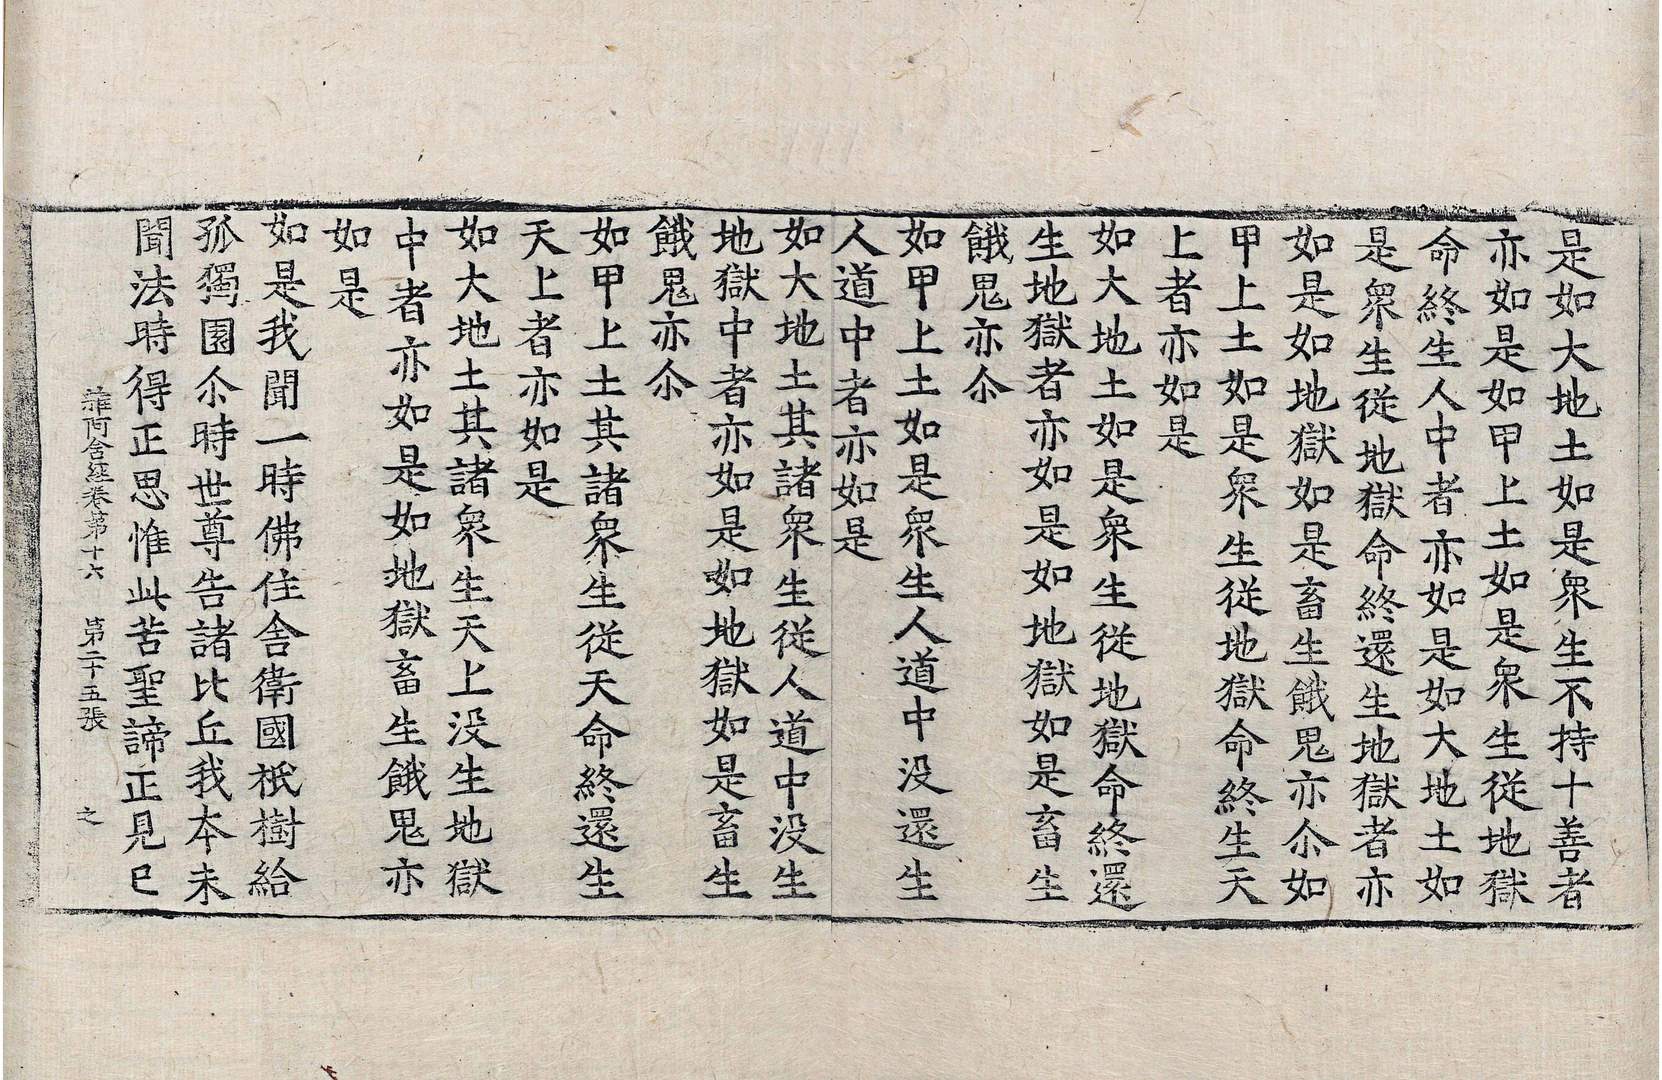 是如大地土如是衆生不持十善者
亦如是如甲上土如是衆生從地獄
命終生人中者亦如是如大地土如
是衆生從地獄命終還生地獄者亦
如是如地獄如是畜生餓鬼亦尒如
甲上土如是衆生從地獄命終生天
上者亦如是
如大地土如是衆生從地獄命終還
生地獄者亦如是如地獄如是畜生
餓鬼亦尒
如甲上土如是衆生人道中没還生
人道中者亦如是
如大地土其諸衆生從人道中没生
地獄中者亦如是如地獄如是畜生
餓鬼亦尒
如甲上土其諸衆生從天命終還生
天上者亦如是
如大地土其諸衆生天上没生地獄
中者亦如是如地獄畜生餓鬼亦
如是
如是我聞一時佛住舍衛國祇樹給
孤獨園尒時世尊告諸比丘我本未
聞法時得正思惟此苦聖諦正見已
雜阿含經卷第十六 第二十五張 之